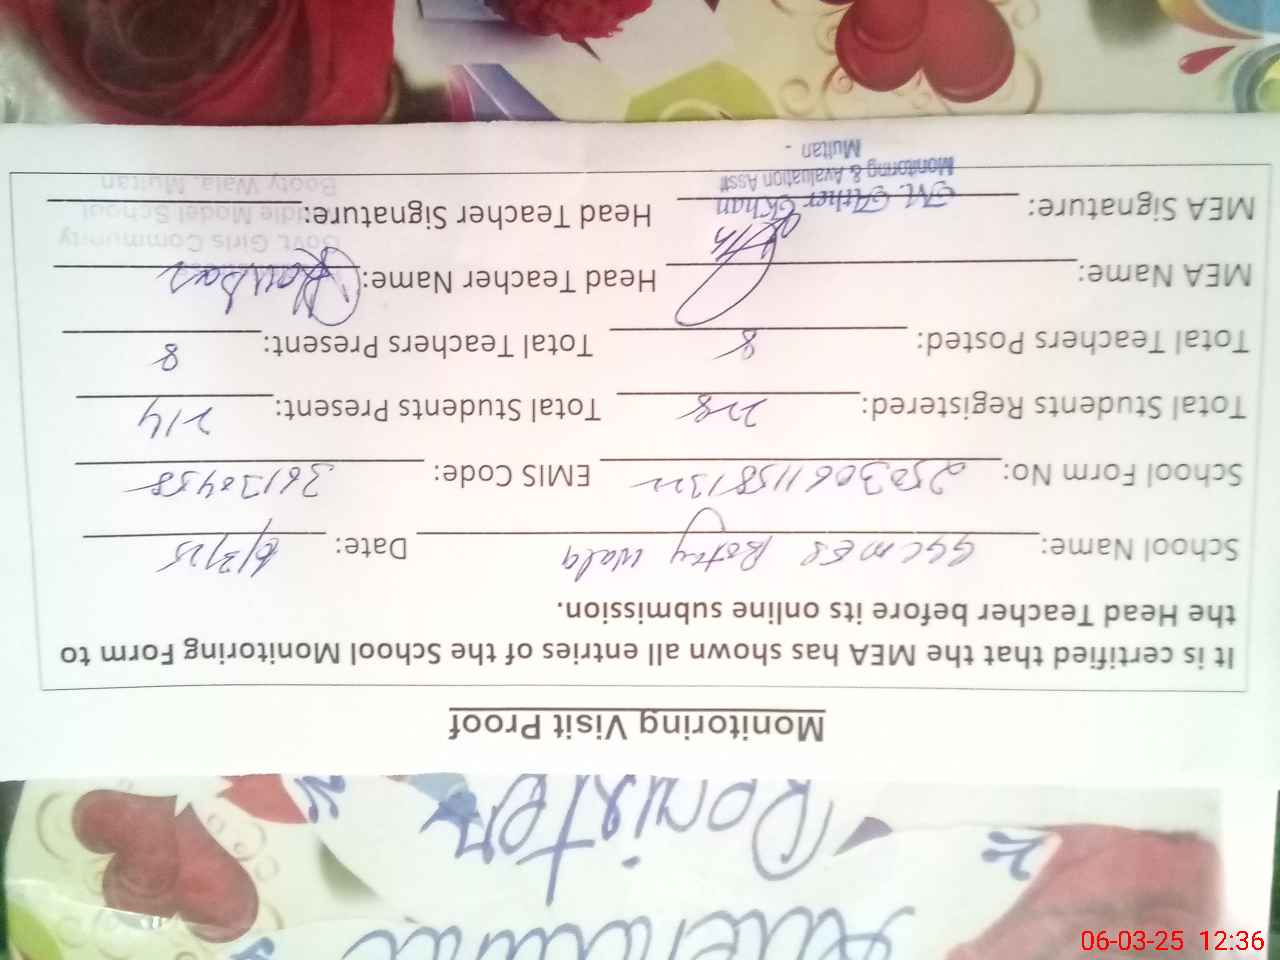 Monitoring Visit Proof
It is certified that the MEA has shown all entries of the School Monitoring Form to
the Head Teacher before its online submission.
School Name: GGCMES Botay Wala Date: 6/3/25
School Form No: 25030611581322 EMIS Code: 36130458
Total Students Registered: 228 Total Students Present: 214
Total Teachers Posted: 8 Total Teachers Present: 8
MEA Name: Head Teacher Name: Kausar
Govt. Girls Community
MEA Signature: M. Ather Khan Head Teacher Signature: Middle Model School
Monitoring & Avaluation Asstt Booty Wala, Multan
Multan -
06-03-25 12:36